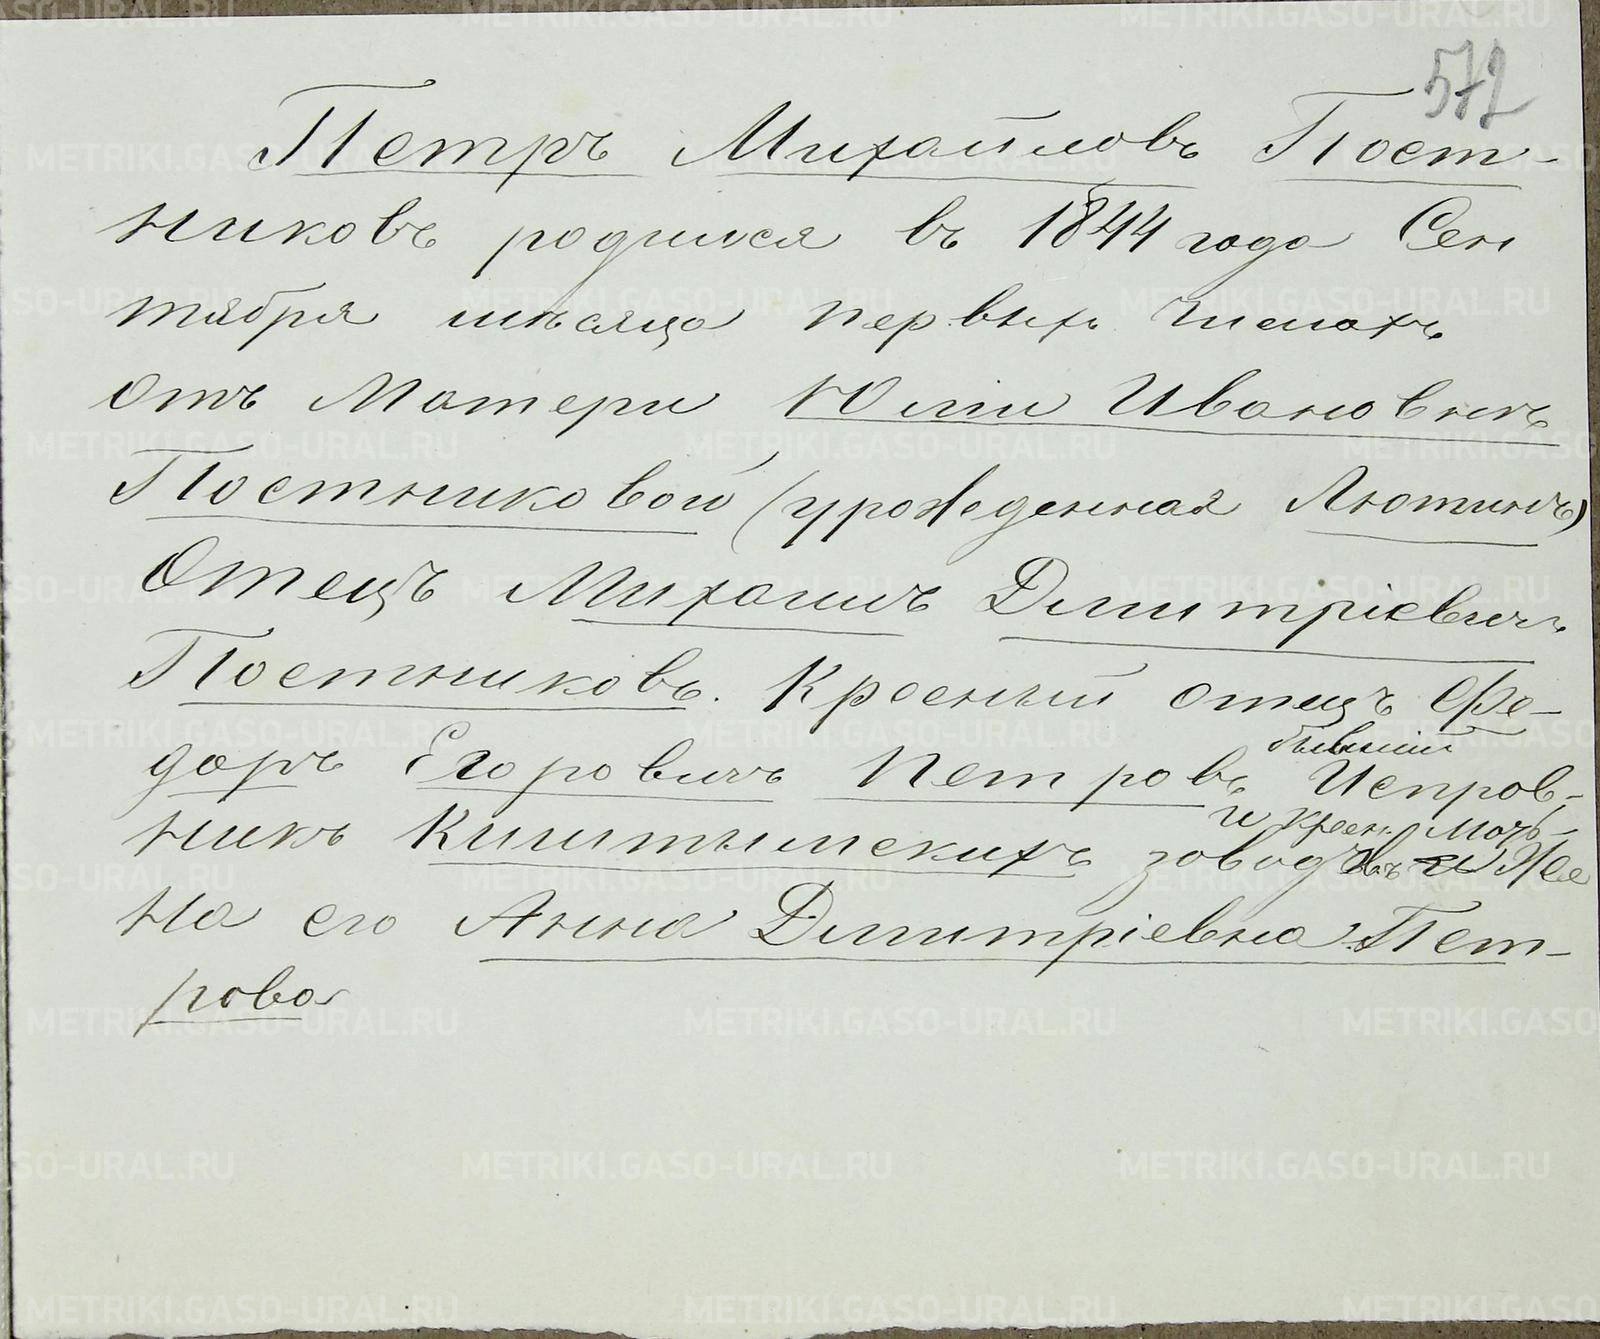 572
Петръ Михайловъ Пост-
никовъ родился въ 1844 года Сен
тября мѣсяца первыхъ числахъ
отъ Матери Юліи Ивановнѣ
Постниковой (урожденная Лютинъ)
Отецъ Михаилъ Дмитріевичъ
Постниковъ. Кресный отецъ Фе-
доръ Егоровичъ Петровъ бывшій Исправ-
никъ Киштымскихъ заводовъ и кресн. мать-Же
на его Анна Дмитріевна Пет-
рова